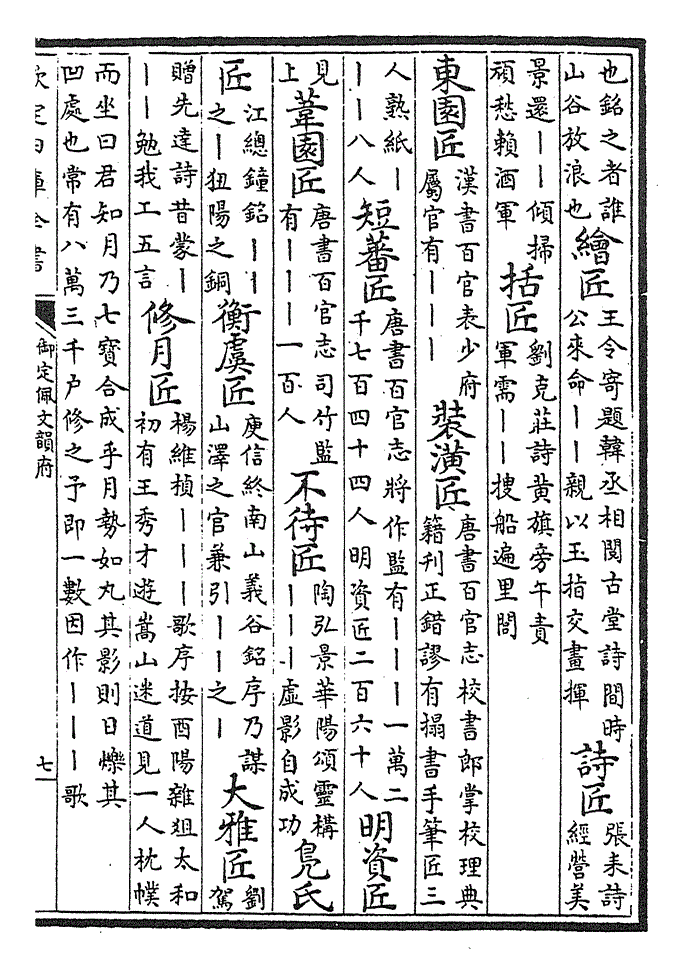 也銘之者誰山谷放浪也繪匠王令寄題韓丞相閱古堂詩間時公來命丨丨親以玉指交畫揮詩匠張耒詩經營美
景還丨丨傾掃頑愁賴酒軍括匠劉克莊詩黄旗旁午責軍需丨丨搜船遍里閭
東園匠漢書百官表少府屬官有丨丨丨裝潢匠唐書百官志校書郎掌校理典籍刊正錯謬有搨書手筆匠三
人熟紙丨丨丨八人短蕃匠唐書百官志將作監有丨丨丨一萬二千七百四十四人明資匠二百六十人明資匠
見上葦園匠唐書百官志司竹監有丨丨丨一百人不待匠陶弘景華陽頌靈構丨丨丨虛影自成功鳧氏
匠江總鐘銘丨丨之丨狃陽之銅衡虞匠庾信終南山義谷銘序乃謀山澤之官兼引丨丨之丨大雅匠劉駕
贈先達詩昔蒙丨丨丨勉我工五言修月匠楊維楨丨丨丨歌序按酉陽雜俎太和初有王秀才遊嵩山迷道見一人枕襆
而坐曰君知月乃七寶合成乎月勢如丸其影則日爍其凹處也常有八萬三千户修之予即一數因作丨丨丨歌
欽定四庫全書
御定佩文韻府
七